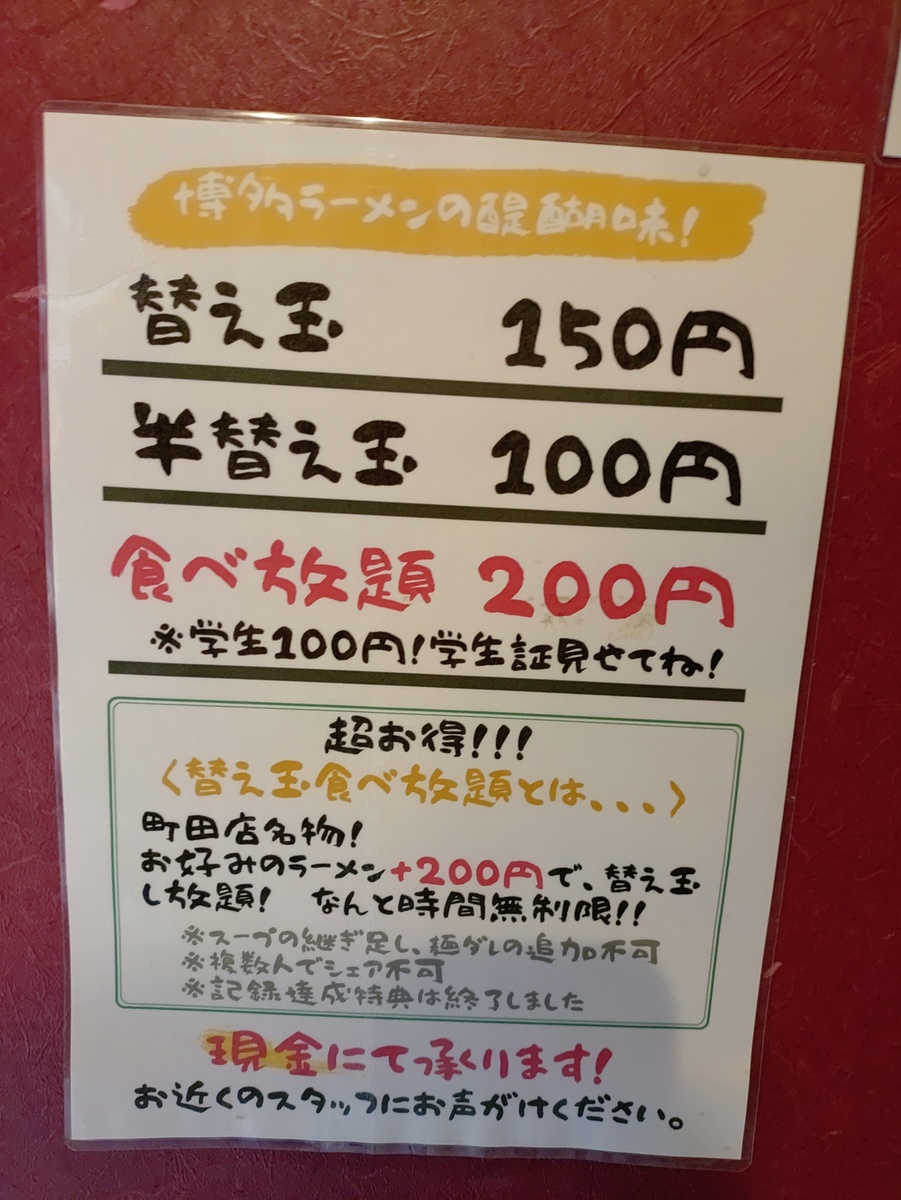 博多ラーメンの醍醐味!
替え玉 150円
半替え玉 100円
食べ放題 200円
※学生100円!学生証見せてね!
超お得!!!
〈替え玉食べ放題とは、、、〉
町田店名物!
お好みのラーメン+200円で、替え玉
し放題! なんと時間無制限!!
※スープの継ぎ足し、麺ダレの追加不可
※複数人でシェア不可
※記録達成特典は終了しました
現金にて承ります!
お近くのスタッフにお声がけください。